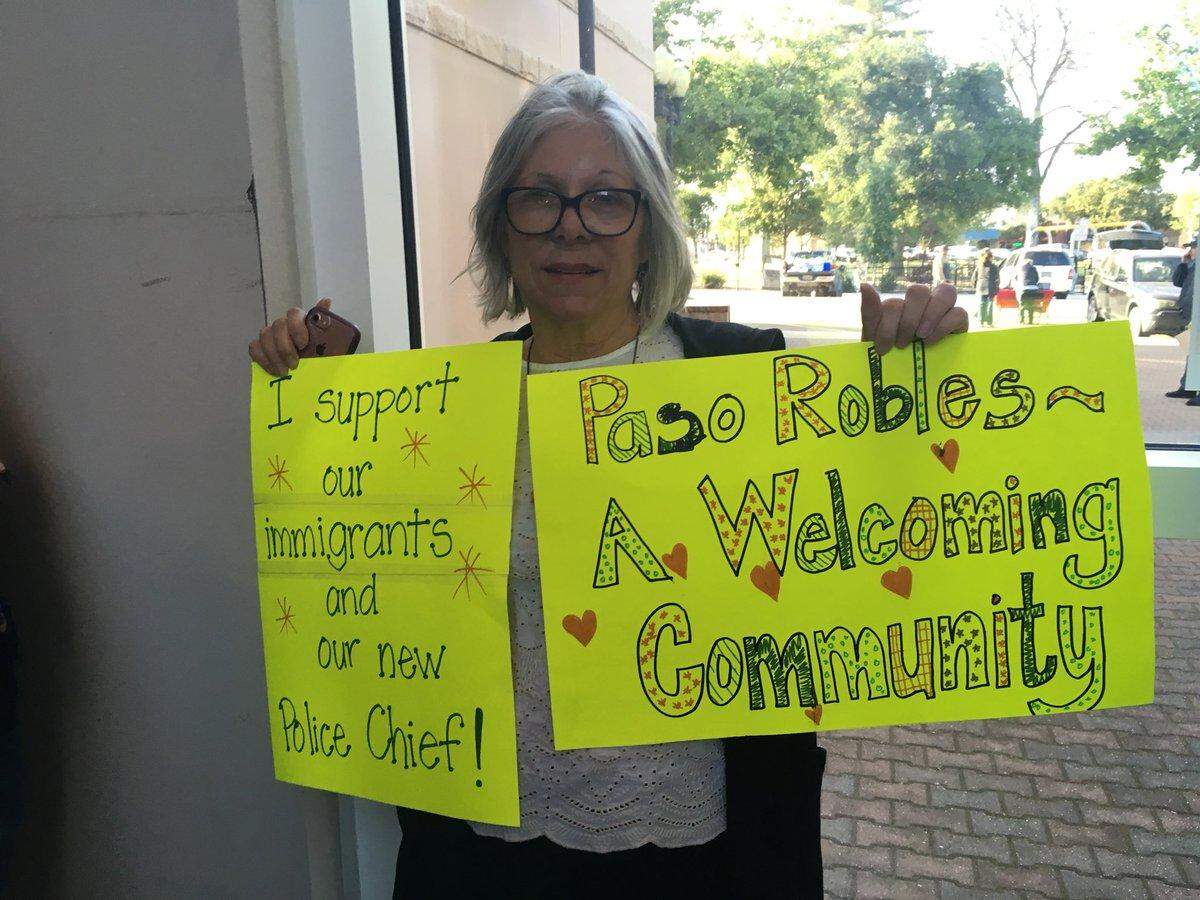 I support
our
immigrants
and
our new
Police Chief!
Paso Robles~
A Welcoming
Community